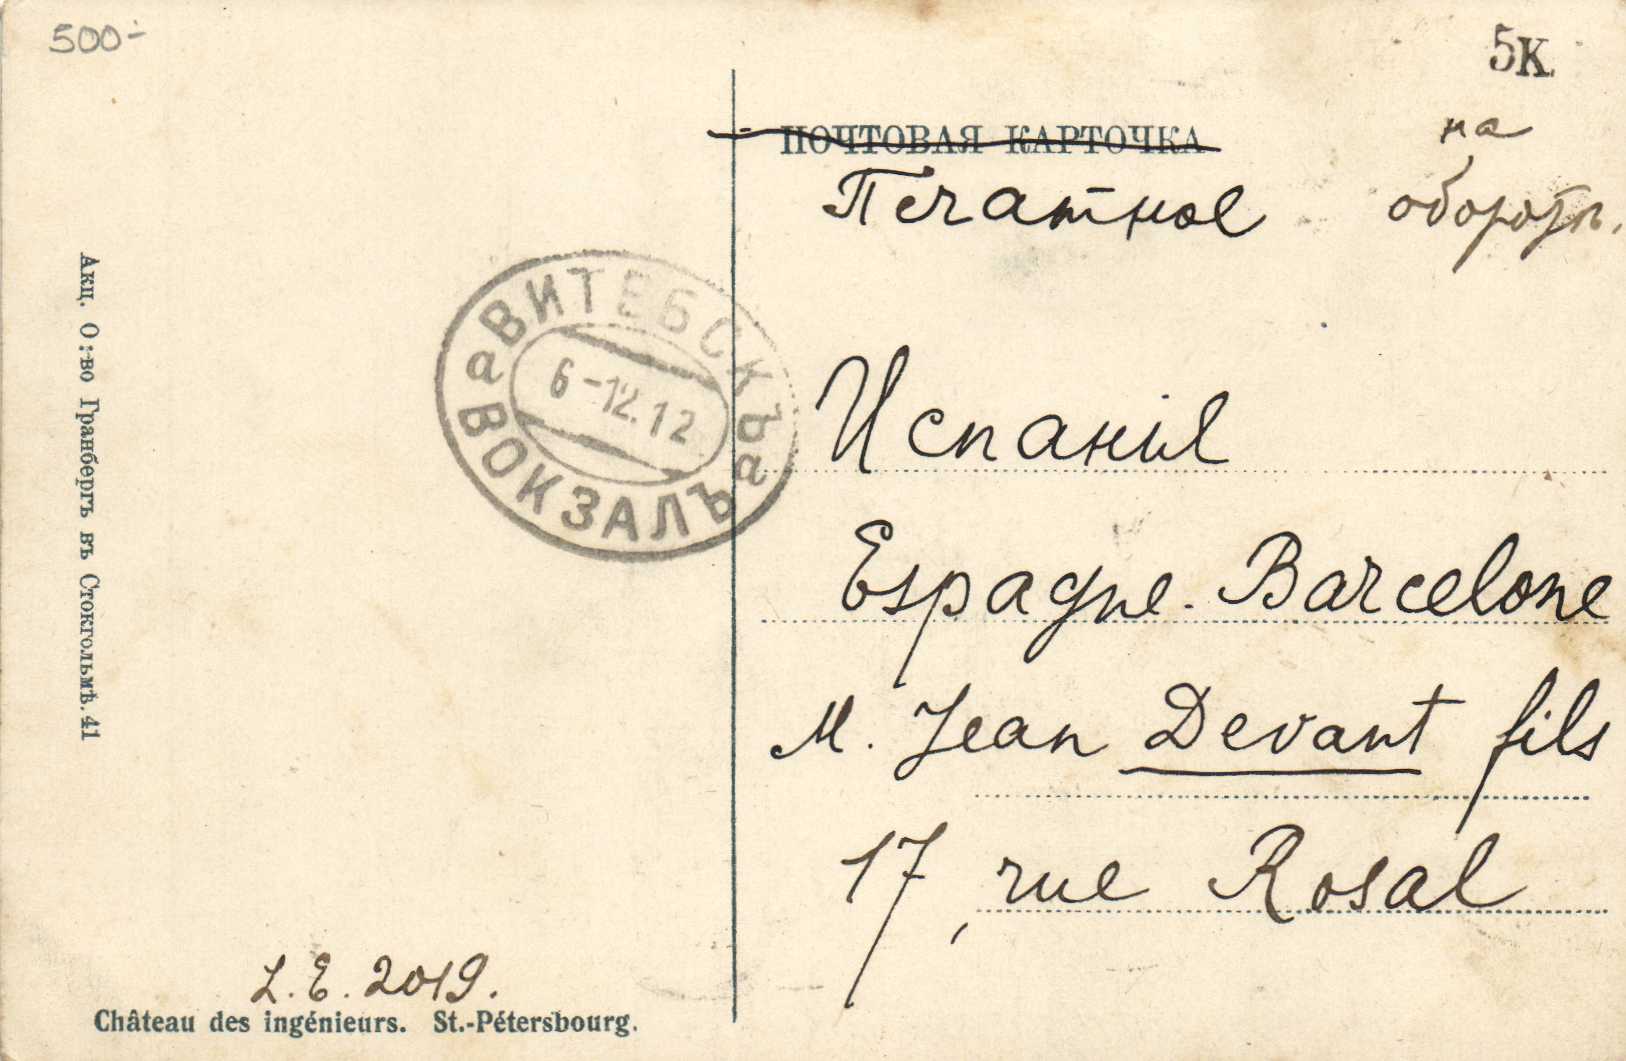 500-
5К.
ПОЧТОВАЯ КАРТОЧКА
на
Печатное
оборотѣ.
ВИТЕБСКЪ
а 6-12.12 а
ВОКЗАЛЪ
Испанія
Espagne. Barcelone
M. Jean Devant fils
17, rue Rosal
Акц. О:-во Гранбергъ въ Стокгольмѣ. 41
L.E. 2019.
Château des ingénieurs. St.-Pétersbourg.